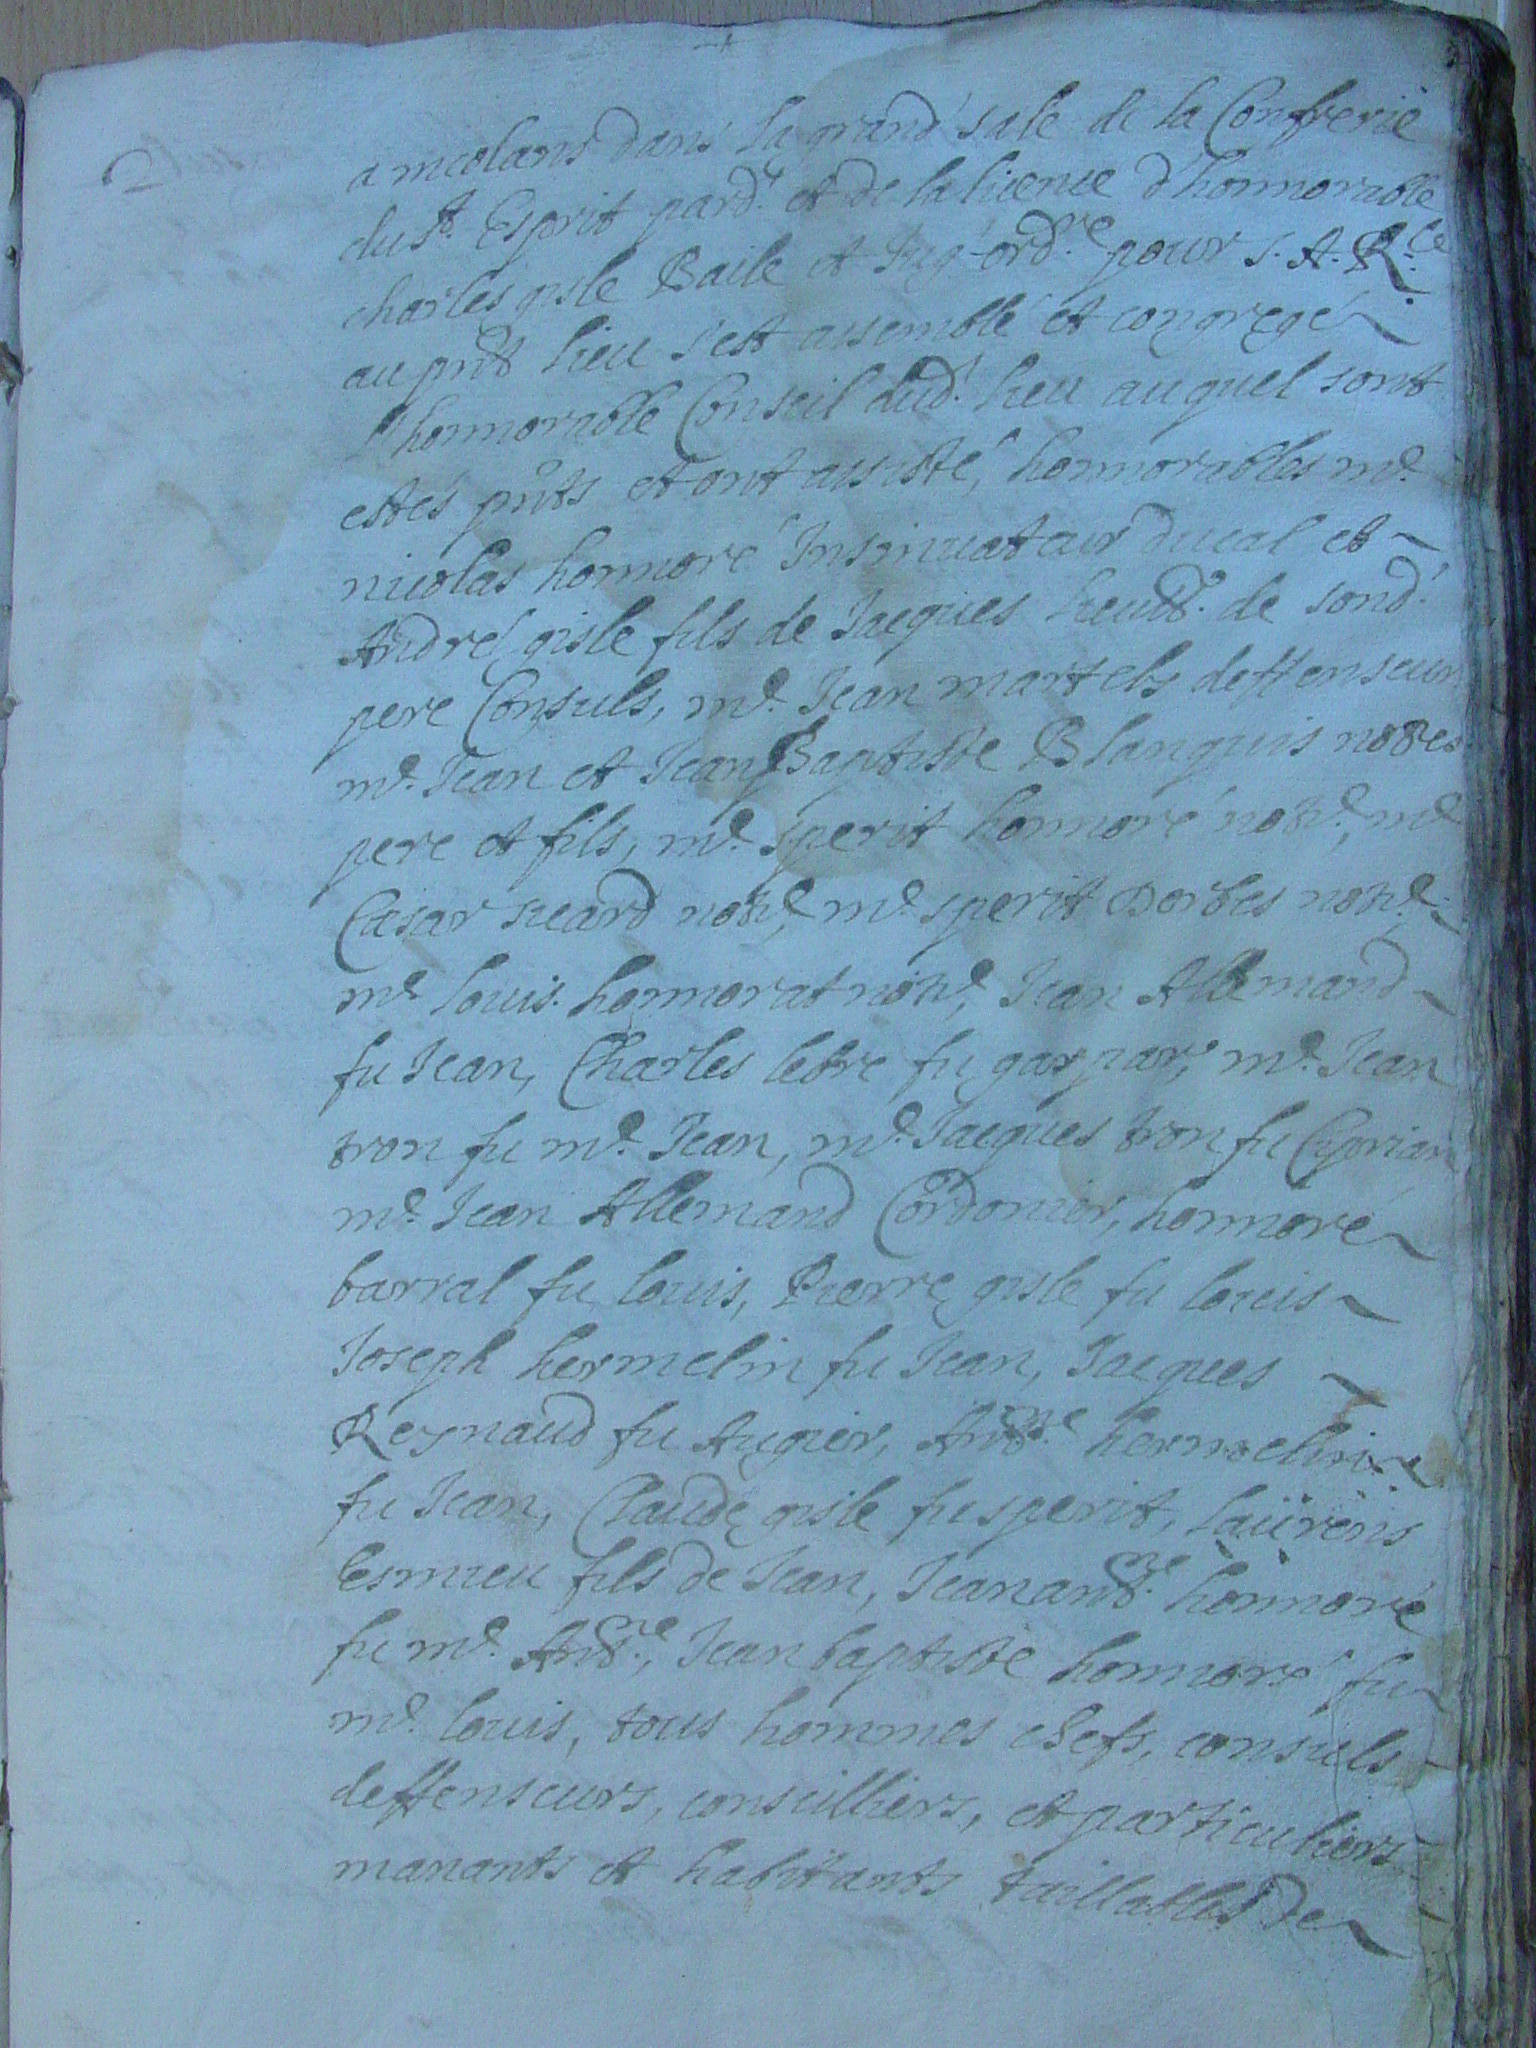 2
a meolans dans la grand sale de la Confrerie
du st. Esprit pard.t et de la licence d'honnorable
charles gisle Baile et Jug ord.re pour S. A. R.le
au pnt lieu s'est assemblé et congregé
l'honnorable Conseil dud. lieu auquel sont
estés pnts et ont assisté, honnorables me.
nicolas honnoré Insinuateur ducal et
André gisle fils de Jacques lieut.t de sond.
pere Consuls, me. Jean martels deffenseur
me. Jean et Jean Baptiste Blanquis not.es
pere et fils, me. sperit honnoré notre, me
Cæsar sicard notre, me. sperit Dorbes notre,
me louis honnorat notre, Jean Allemand
fu Jean, Charles lebre fu gaspar, me. Jean
tron fu me. Jean, me. Jacques tron fu Ciprian
me. Jean Allemand Cordonier, honnoré
barral fu louis, Pierre gisle fu louis
Joseph hermelin fu Jean, Jacques
Reynaud fu Augier, Ant.ne hermelin
fu Jean, Claude gisle fu sperit, laürens
Esmieu fils de Jean, Jean ant.ne honnoré
fu me. Ant.ne, Jean baptiste honnoré fu
me. louis, tous hommes chefs, consuls
deffenseurs, conseilliers, et particuliers
manants et habitants taillables de